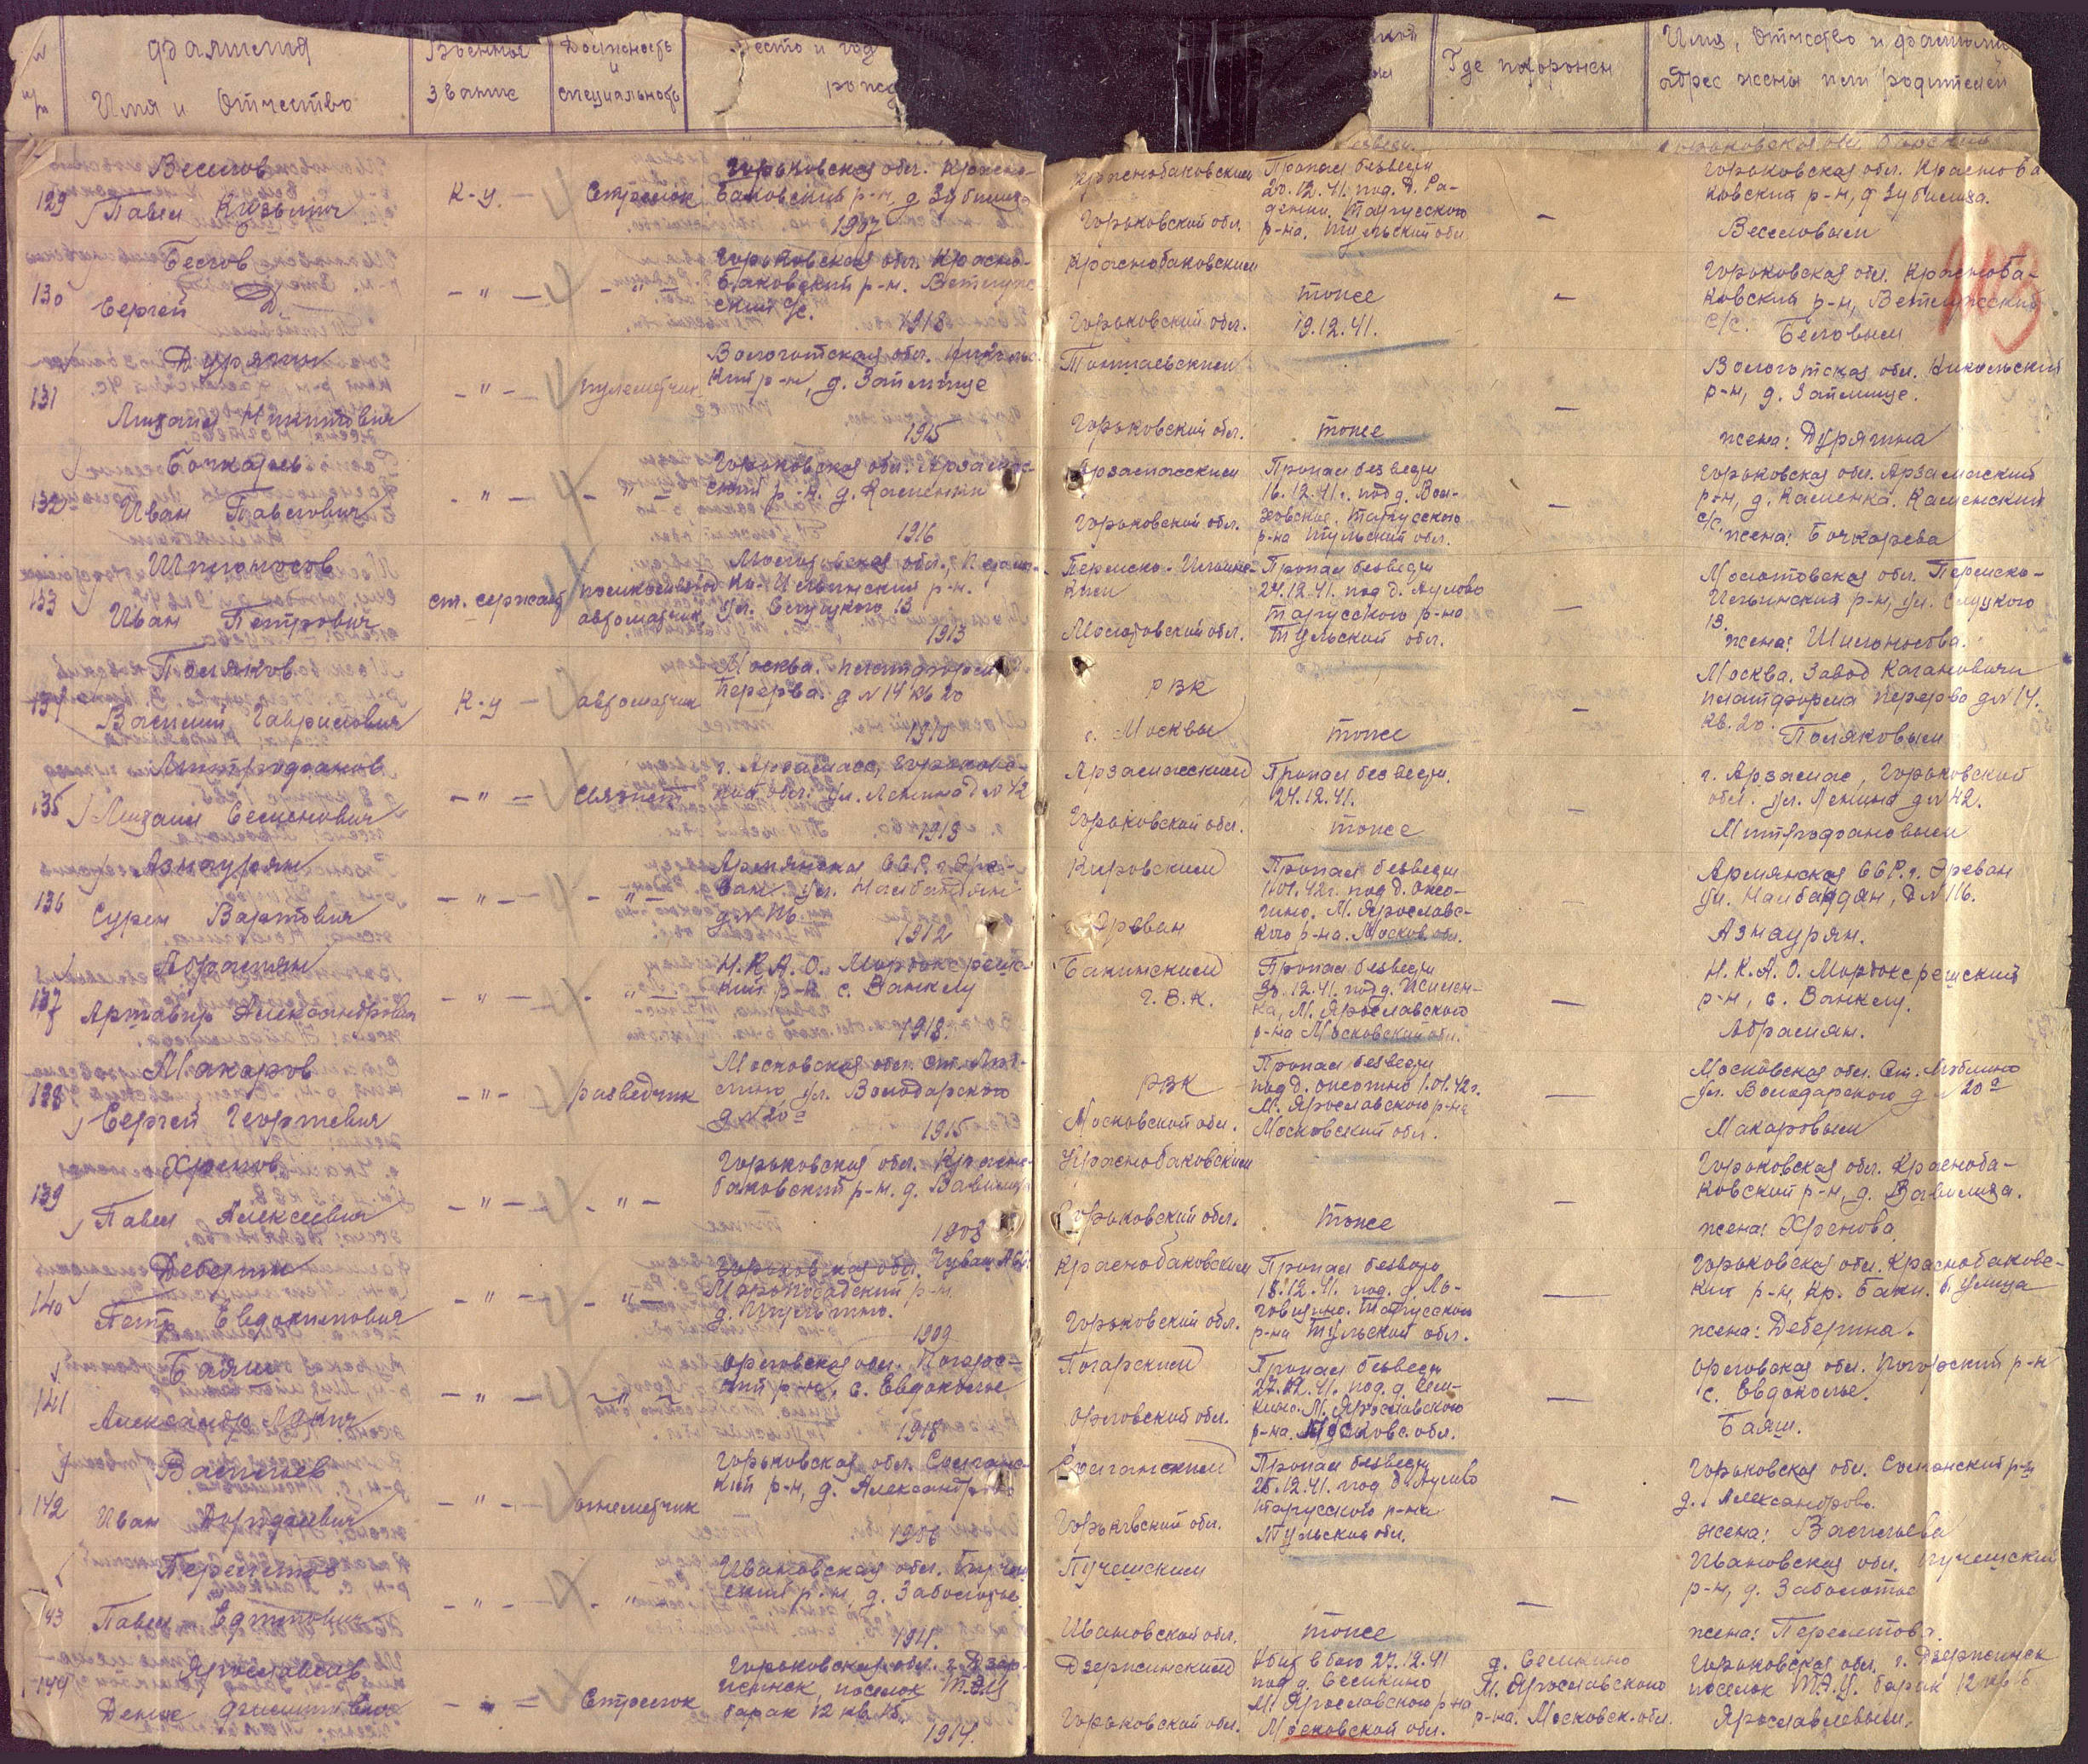 № п/п
Фамилия
Имя и Отчество
Военное
звание
Должность
и
специальность
Место и год
рожд
Где похоронен
Имя, Отчество и фамилия
адрес жены или родителей
Горьковская обл.
129
Веселов
Павел Кузьмич
К-ц.
Стрелок
Горьковская обл. Красно-
Баковский р-н, д. Зубилиха
1907
Краснобаковским
Горьковский обл.
Пропал безвести
20.12.41. под. д.
Таруского
р-на, Тульский обл.
—
Горьковская обл. Красноба
ковский р-н, д. Зубилиха.
Веселовым
130
Беглов
Сергей Д
- " -
- " -
Горьковская обл. Красно-
Баковский р-н. Ветлужс
ский с/с.
1918
Краснобаковским
Горьковский обл.
тоже
19.12.41.
—
Горьковская обл. Красноба-
ковский р-н, Ветлужский
с/с. Бегловым
131
Дурягин
Михаил Никитович
- " -
пулеметчик
Вологотская обл. Никольс
кий р-н, д. Займище
1915
Тоншаевским
Горьковский обл.
тоже
—
Вологотская обл. Никольский
р-н, д. Займище.
жена: Дурягина
132
Бочкарев
Иван Павлович
- " -
- " -
Горьковская обл. Арзамас-
ский р-н. д. Каменки
1916
Арзамасским
Горьковский обл.
Пропал безвести
16.12.41г. под д. Вол-
ховское. Таруского
р-на Тульский обл.
—
Горьковская обл. Арзамаский
р-н, д. Каменка. Каменский
с/с. жена: Бочкарева
133
Шилоносов
Иван Петрович
ст. сержант
автоматчик
Молотовская обл.,
Ильинский р-н.
ул. Слуцкого 13
1913
Пермско-Ильинс-
ким
Молотовский обл.
Пропал безвести
24.12.41. под д. Лулово
Таруского р-на
Тульской обл.
—
Молотовская обл. Пермско-
Ильинский р-н, ул. Слуцкого
13.
жена: Шилоносова.
134
Поляков
Василий Гаврилович
К-ц
автоматчик
Москва. платформа
Перерва. д № 14 кв 20
1910
РВК
г. Москвы
тоже
—
Москва. Завод Кагановича
платформа Перерво д № 14.
кв. 20. Поляковым
135
Митрофанов
Михаил Семенович
- " -
связист
г. Арзамасс, Горьковс-
кий обл. ул. Ленина д № 42
1913
Арзамасским
Горьковской обл.
Пропал безвести.
24.12.41.
тоже
—
г. Арзамас, Горьковской
обл. ул. Ленина д № 42.
Митрофановым
136
Азнаурян
Сурен Вартович
- " -
- " -
Армянская ССР. г. Эре-
ван ул. Налбандян
д № 116.
1912
Кировским
г. Эреван
Пропал безвести
1.01.42г. под д.
М. Ярославс-
кого р-на. Москов. обл.
—
Армянская ССР. г. Эреван
ул. Налбандян, д № 116.
Азнаурян.
137
Абрамян
Артавир Александрович
- " -
- " -
Н.К.А.О. Мардокерешс-
кий р-н с. Ванклу
1918.
Бакинским
Г. В. К.
Пропал безвести
30.12.41. под д.
М. Ярославского
р-на Московский обл.
—
Н.К.А.О. Мардокерешский
р-н, с. Ванклу.
Абрамян.
138
Макаров
Сергей Георгиевич
- " -
разведчик
Московская обл. ст. Люб-
лино ул. Володарского
д № 20а
1915
РВК
Московской обл.
Пропал безвести
под д. 1.01.42г.
М. Ярославского р-на
Московский обл.
—
Московская обл. Ст. Люблино
ул. Володарского д № 20а
Макаровым
139
Хренов
Павел Алексеевич
- " -
- " -
Горьковская обл. Красно-
баковский р-н. д. Вавилиха
1903
Краснобаковским
Горьковский обл.
тоже
—
Горьковская обл. Красноба-
ковский р-н, д. Вавилиха.
жена: Хренова
140
Деберин
Петр Евдокимович
- " -
- " -
Горьковская обл. Чуваш АССР
р-н.
д.
1909
Краснобаковским
Горьковский обл.
Пропал безвести
18.12.41. под. д.
Таруского
р-на Тульский обл.
—
Горьковская обл. Краснобаковс-
кий р-н, Кр. Баки. б. улица
жена: Деберина.
141
Баяш
Александр
- " -
- " -
Орловская обл. Погарс-
кий р-н, с. Евдоколье
1918
Погарским
Орловский обл.
Пропал безвести
27.12.41. под. д. Сем-
кино. М. Ярославского
р-на. Московс. обл.
—
Орловская обл. Погарский р-н
с. Евдоколье.
Баяш.
142
Васильев
Иван Дорофеевич
- " -
огнеметчик
Горьковская обл. Салганс-
кий р-н, д. Александрово
1906
Салганским
Горьковский обл.
Пропал безвести
25.12.41. под д. Лулово
Таруского р-на
Тульский обл.
—
Горьковская обл. Салганский р-н
д. Александрово.
жена: Васильева
143
Перелетов
Павел
- " -
- " -
Ивановская обл. Пучеж
ский р-н, д. Заболотье
1911.
Пучешским
Ивановской обл.
тоже
—
Ивановская обл. Пучешский
р-н, д. Заболотье
жена: Перелетова.
144
Ярославлев
Денис
- " -
Стрелок
Горьковская обл. г. Дзер-
жинск, поселок Т.Э.Ц
барак 12 кв 15.
1914.
Дзержинским
Горьковский обл.
Убит в бою 27.12.41
под д. Семкино
М. Ярославского р-на
Московской обл.
д. Семкино
М. Ярославского
р-на. Московск. обл.
Горьковская обл. г. Дзержинск
поселок Т.Э.Ц. барак 12 кв 15
Ярославлевым.